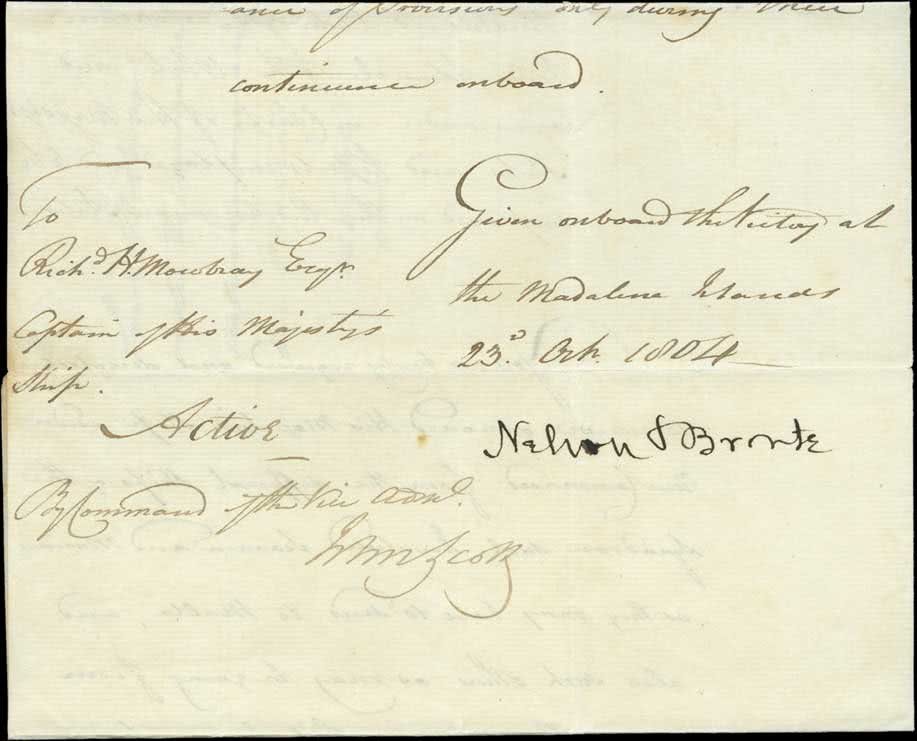 ance of Provisions only during their
continuance onboard.
To
Richd. H. Mowbray Esqr.
Captain of His Majesty's
Ship.
Active
Given onboard the Victory at
the Madalena Islands
23d. Octr. 1804
Nelson & Bronte
By Command of the Vice Adml.
John Scott